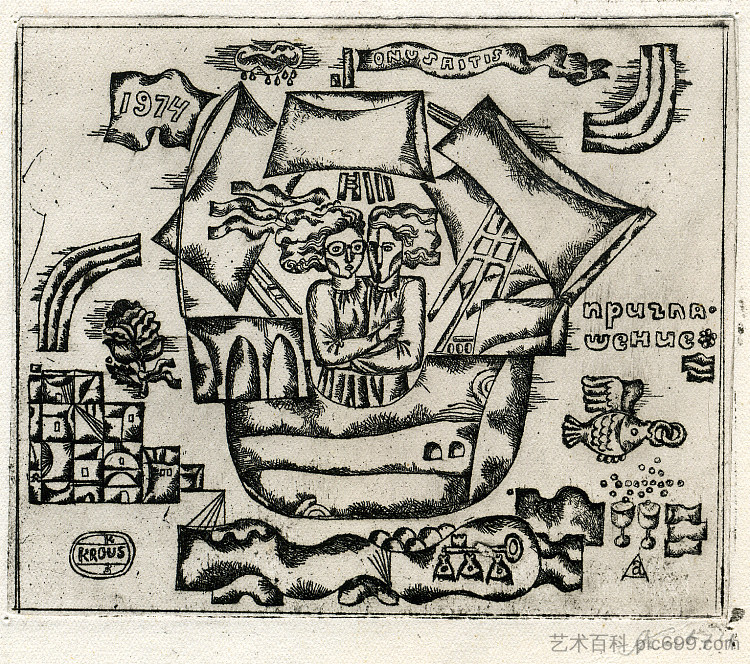 ONUSAITIS
1974
пригла-
шение
KROUS
a
艺术百科 pic699.com